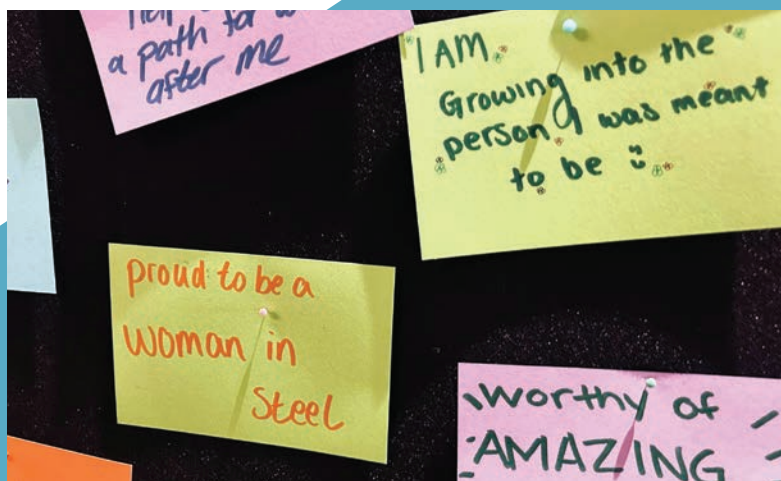 a path for
after me
I AM
Growing into the
person I was meant
to be
proud to be a
woman in
Steel
worthy of
AMAZING